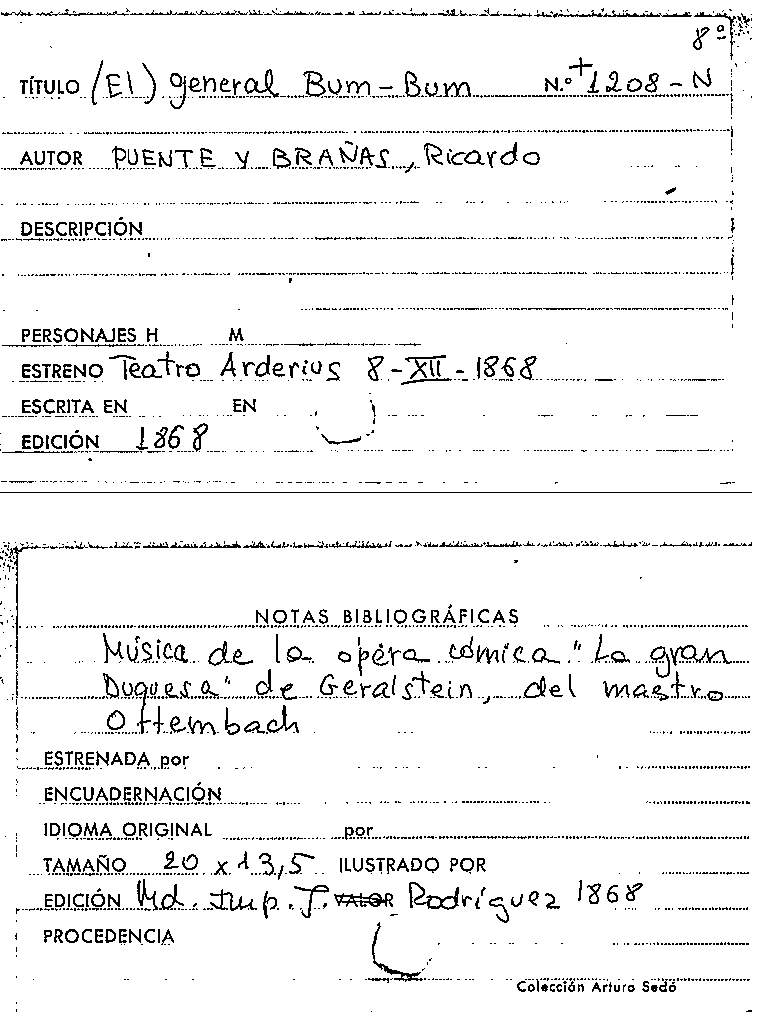 8º
TÍTULO (El) general Bum-Bum N.º +1208-N
AUTOR PUENTE Y BRAÑAS, Ricardo
DESCRIPCIÓN
PERSONAJES H M
ESTRENO Teatro Arderius 8-XII-1868
ESCRITA EN EN
EDICIÓN 1868
NOTAS BIBLIOGRÁFICAS
Música de la opéra cómica "La gran
Duquesa" de Geralstein, del maestro
Offembach
ESTRENADA por
ENCUADERNACIÓN
IDIOMA ORIGINAL por
TAMAÑO 20 x 13,5 ILUSTRADO POR
EDICIÓN Md. Imp. J. VALOR Rodríguez 1868
PROCEDENCIA
Colección Arturo Sedó